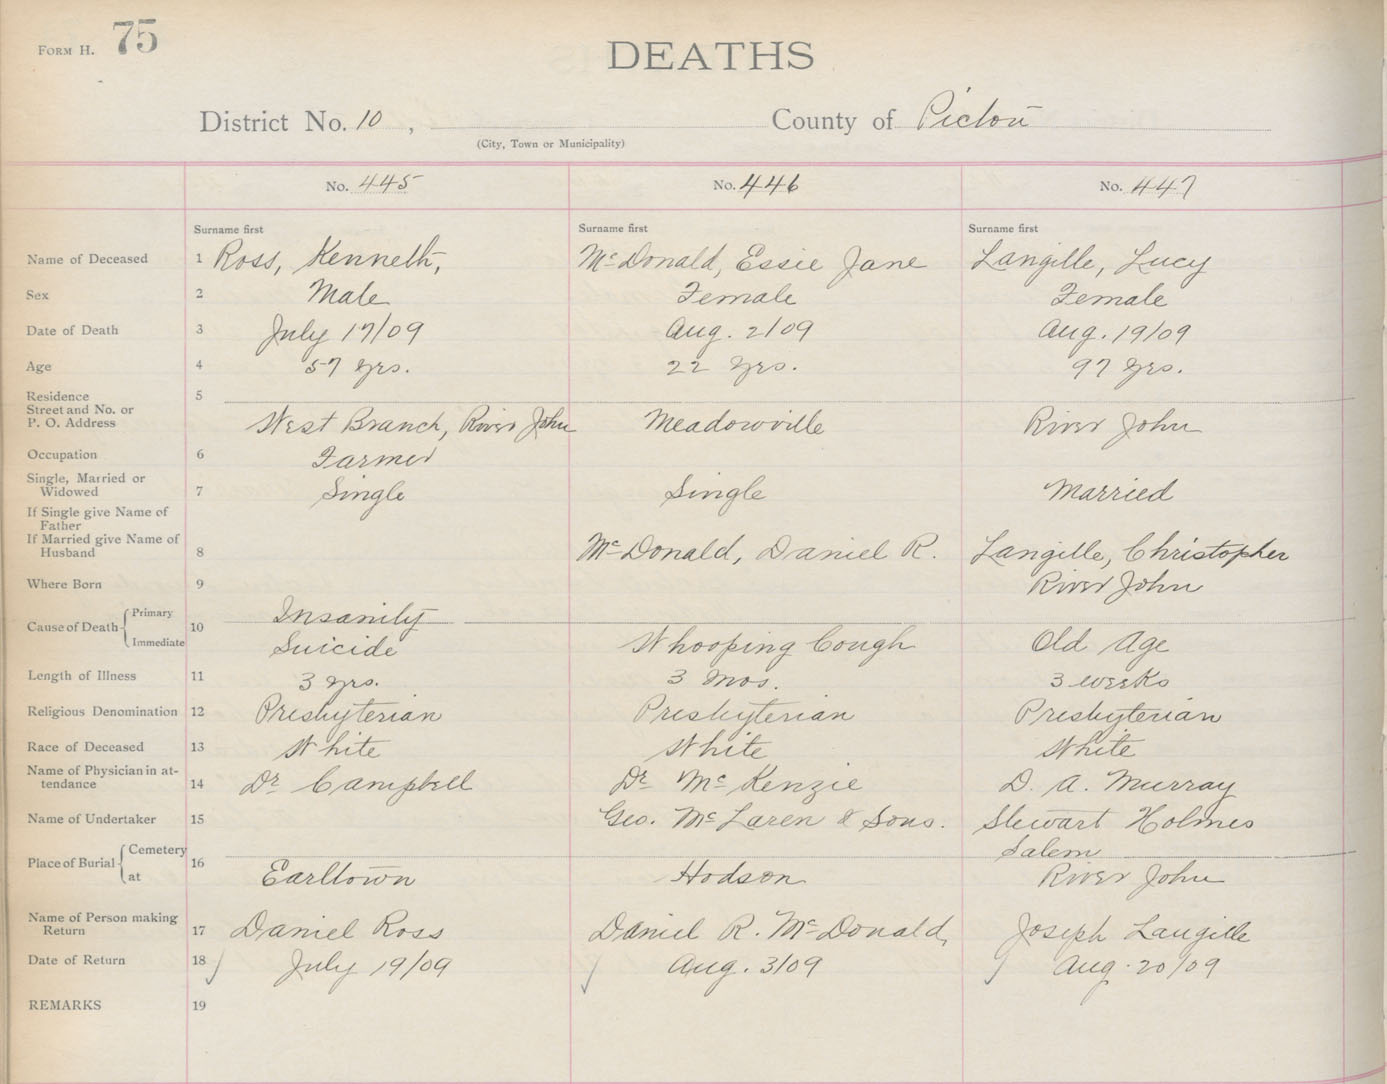 FORM H. 75
DEATHS
District No. 10, County of Pictou
(City, Town or Municipality)
No. 445 No. 446 No. 447
Surname first Surname first Surname first
Name of Deceased 1 Ross, Kenneth, McDonald, Essie Jane Langille, Lucy
Sex 2 Male Female Female
Date of Death 3 July 17/09 Aug. 2/09 Aug. 19/09
Age 4 57 yrs. 22 yrs. 97 yrs.
Residence 5
Street and No. or
P. O. Address West Branch, River John Meadowville River John
Occupation 6 Farmer
Single, Married or
Widowed 7 Single Single Married
If Single give Name of
Father
If Married give Name of
Husband 8 McDonald, Daniel R. Langille, Christopher
Where Born 9 River John
Cause of Death Primary 10 Insanity
Immediate Suicide Whooping Cough Old Age
Length of Illness 11 3 yrs. 3 mos. 3 weeks
Religious Denomination 12 Presbyterian Presbyterian Presbyterian
Race of Deceased 13 White White White
Name of Physician in at-
tendance 14 Dr Campbell Dr McKenzie D. A. Murray
Name of Undertaker 15 Geo. McLaren & Sons. Stewart Holmes
Place of Burial Cemetery 16 Salem
at Earltown Hodson River John
Name of Person making
Return 17 Daniel Ross Daniel R. McDonald, Joseph Langille
Date of Return 18 July 19/09 Aug. 3/09 Aug. 20/09
REMARKS 19